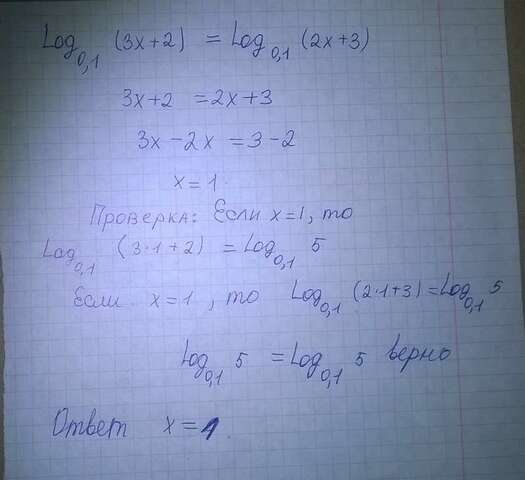 Log₀,₁ (3x+2) = Log₀,₁ (2x+3)
3x+2 = 2x+3
3x-2x = 3-2
x=1.
Проверка: Если x=1, то
Log₀,₁ (3·1+2) = Log₀,₁ 5
Если x=1, то Log₀,₁ (2·1+3)=Log₀,₁ 5
Log₀,₁ 5 = Log₀,₁ 5 верно
Ответ x=1.